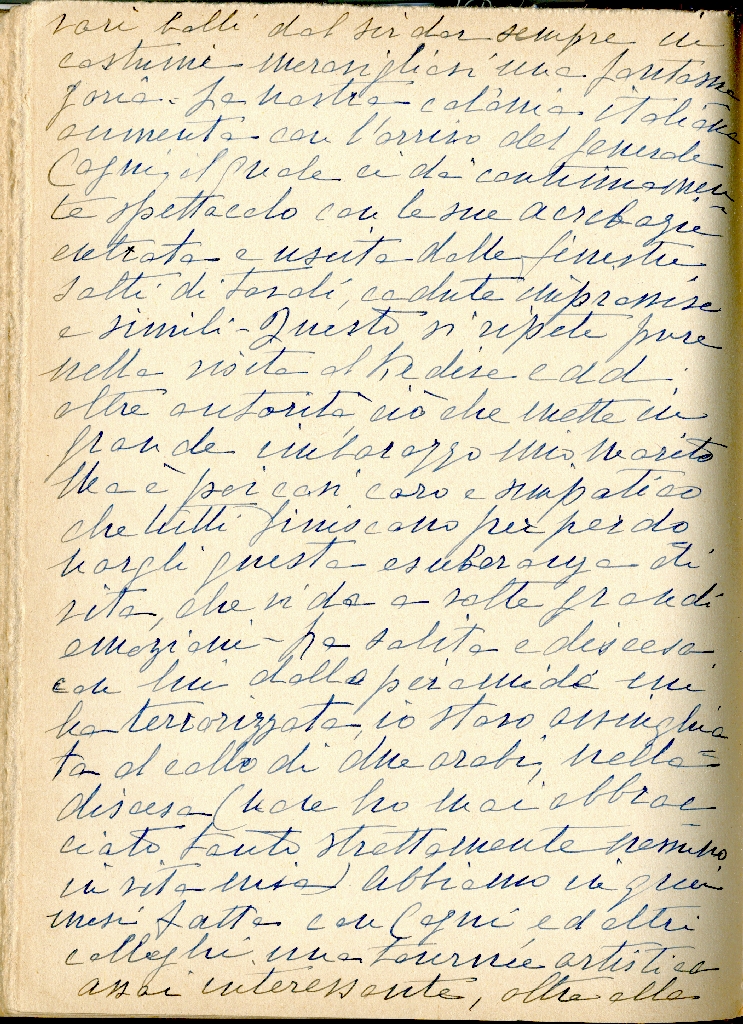 vari balli dal sirdar sempre in
costumi meravigliosi una fantasma
goria - La nostra colonia italiana
aumenta con l'arrivo del generale
Cagni, il quale ci dà continuamen
te spettacolo con le sue acrobazie
entrata e uscita dalle finestre
salti di tavoli, cadute improvvise
e simili - Questo si ripete pure
nella visita al Kedive e ad
altre autorità, ciò che mette in
grande imbarazzo mio marito
Ma è poi così caro e simpatico
che tutti finiscono per perdo
nargli questa esuberanza di
vita, che vi dà a volte grandi
emozioni - La salita e discesa
con lui dalla piramide mi
ha terrorizzata, io stavo avvinghia
ta al collo di due arabi, nella
discesa (non ho mai abbrac
ciato tanto strettamente nessuno
in vita mia) Abbiamo in quei
mesi fatta con Cagni ed altri
colleghi una tournée artistica
assai interessante, oltre alla